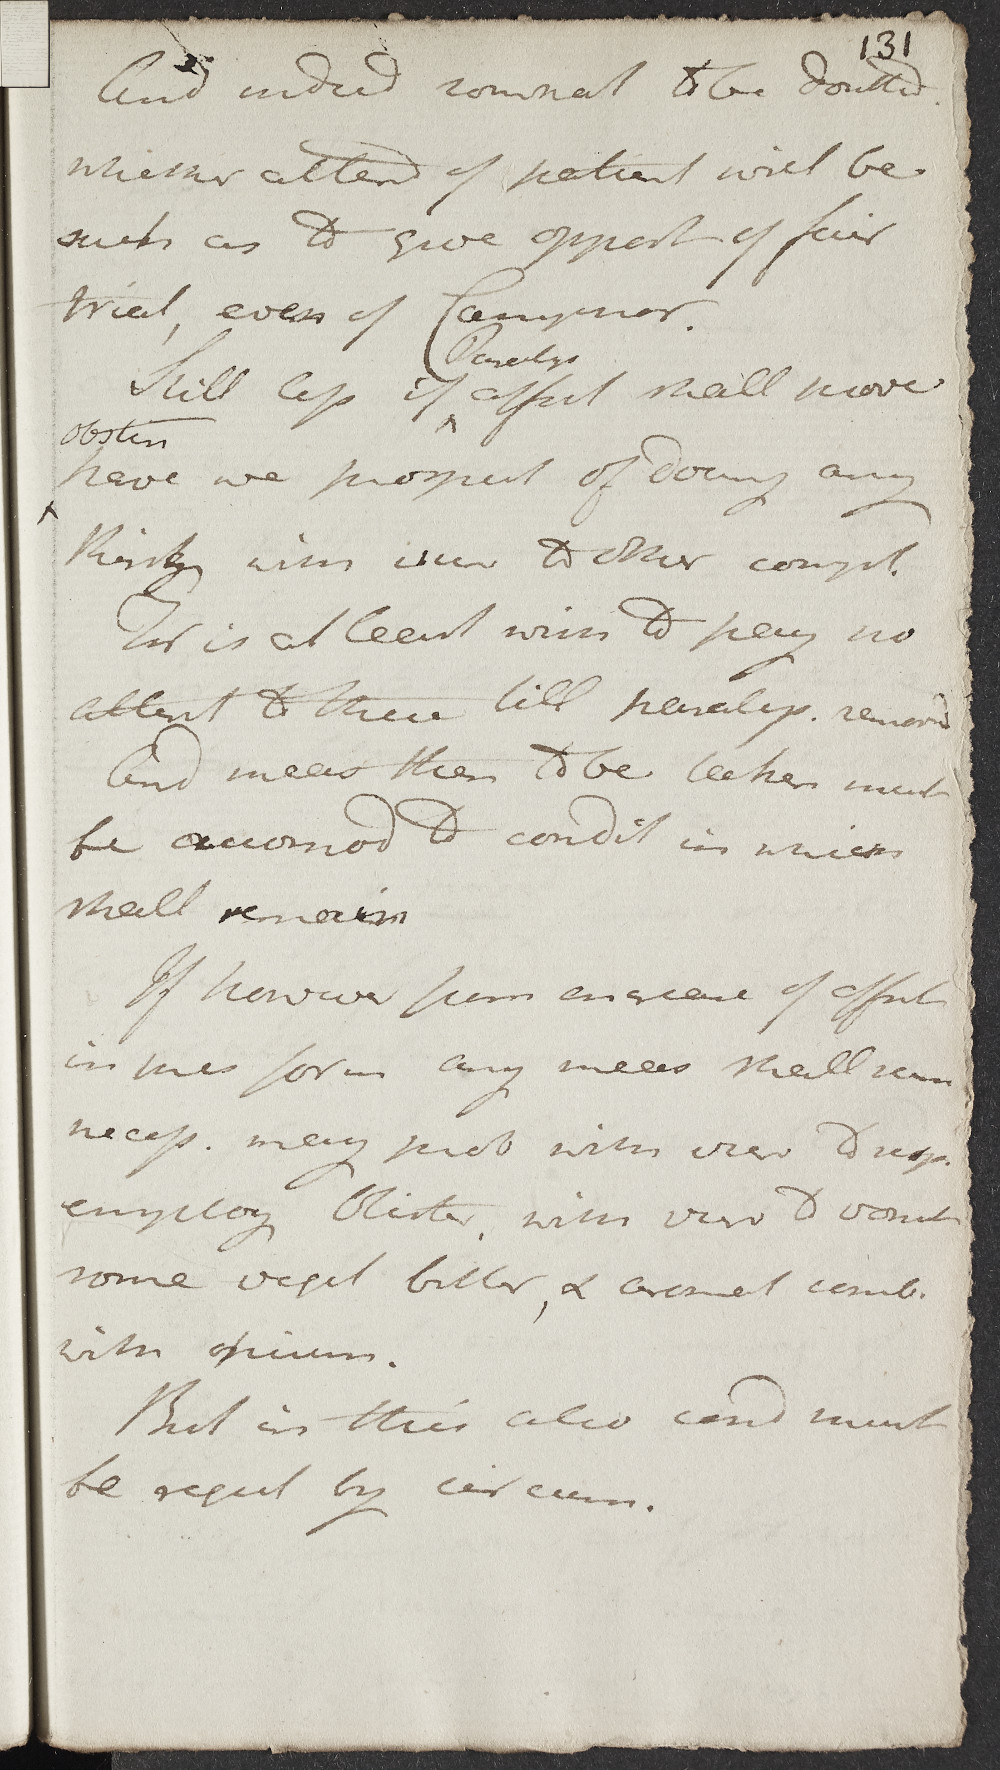 131
And indeed somwhat to be doubted
whether attend of patient will be
such as to give opport of fair
trial, even of
Paralys
Still less if affect shall prove
obstin
have we prospect of doing any
thing with view to other compl.
It is at least with to pay no
attent to these till paralys. remov'd
And meas then to be taken must
be accomod to condit in which
shall remain
If however from encrease of affect
in this form any meas shall seem
necess. may prob with view to resp.
employ Blister, with view to vomit
some veget bitter, & aromat comb.
with opium.
But in this also cond must
be regul by circum.